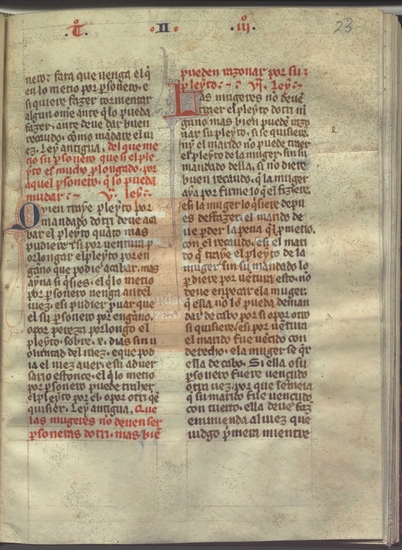 T. II iii
23
nero: fata que venga el q̃
en lo metio por ꝑsonero. e
si quiere fazer tormentar
algun ome ante q̃ lo pueda
fazer. ante deve dar buen
recaudo. como mãdare el iu
ez. Ley antigua. del que me
no su ꝑsonero que si el ple
yto es mucho ꝓlongado. por
aquel ꝑsonero. q̃ lo pueda
mudar: ~ V. ley: ~
Quien traye pleyto por
mandado dotri deve aca
bar el pleyto quato mas
pudiere: e si por ventura ꝑ
orlongar el pleyto por en
gano que podie acabar. mas
ayna si q̃sies. el q̃ lo metio
por ꝑsonero venga antel
iuez. e si pudier puar que
el su ꝑsonero por engano.
opor pereza porlongo el
pleyto. sobre .x. dias sin u
oluntad del iuez. e que pod
ia el iuez auer. e su adver
sario estonce. el q̃ lo metio
por ꝑsonero puede traher
el pleyto por el. o por otri q̃l
quisier. Ley antigua. Que
las mugeres no deven ser
ꝑsoneras dotri. mas biẽ
pueden razonar por su:
pleyto: ~ VI. Ley: ~
Las mugeres no deuẽ
traer el pleyto dotri nĩ
guno mas bien puedẽ razo
nar su pleyto. si se quisierẽ.
ny el marido no puede traer
el pleyto de la muger. sin su
mandado della. si no diere
buen recaudo. q̃ la muger
aya por firme lo q̃ el fiziere.
e si la muger lo q̃siere depu
es desfazer. el marido de
ue pder la pena q̃ ꝓmetio.
con el recaudo. e si el mari
to q̃ traye el pleyto de la
muger sin su mandado lo
ꝑdiere por uẽtura esto. no
deue enpecer a la muger.
q̃ ella no lo pueda deman
dar de cabo por si o por otro
si quisiere. e si por uẽtura
el marido fue uẽcido con
derecho. e la muger se q̃r
ella de cabo. Si ella o su
ꝑsonero fuere uencido
otra uez. por que semeia
q̃ su marido fue uencido.
con tuerto. ella deue faz̃
emmienda al iuez que
iudgo pmera mientre